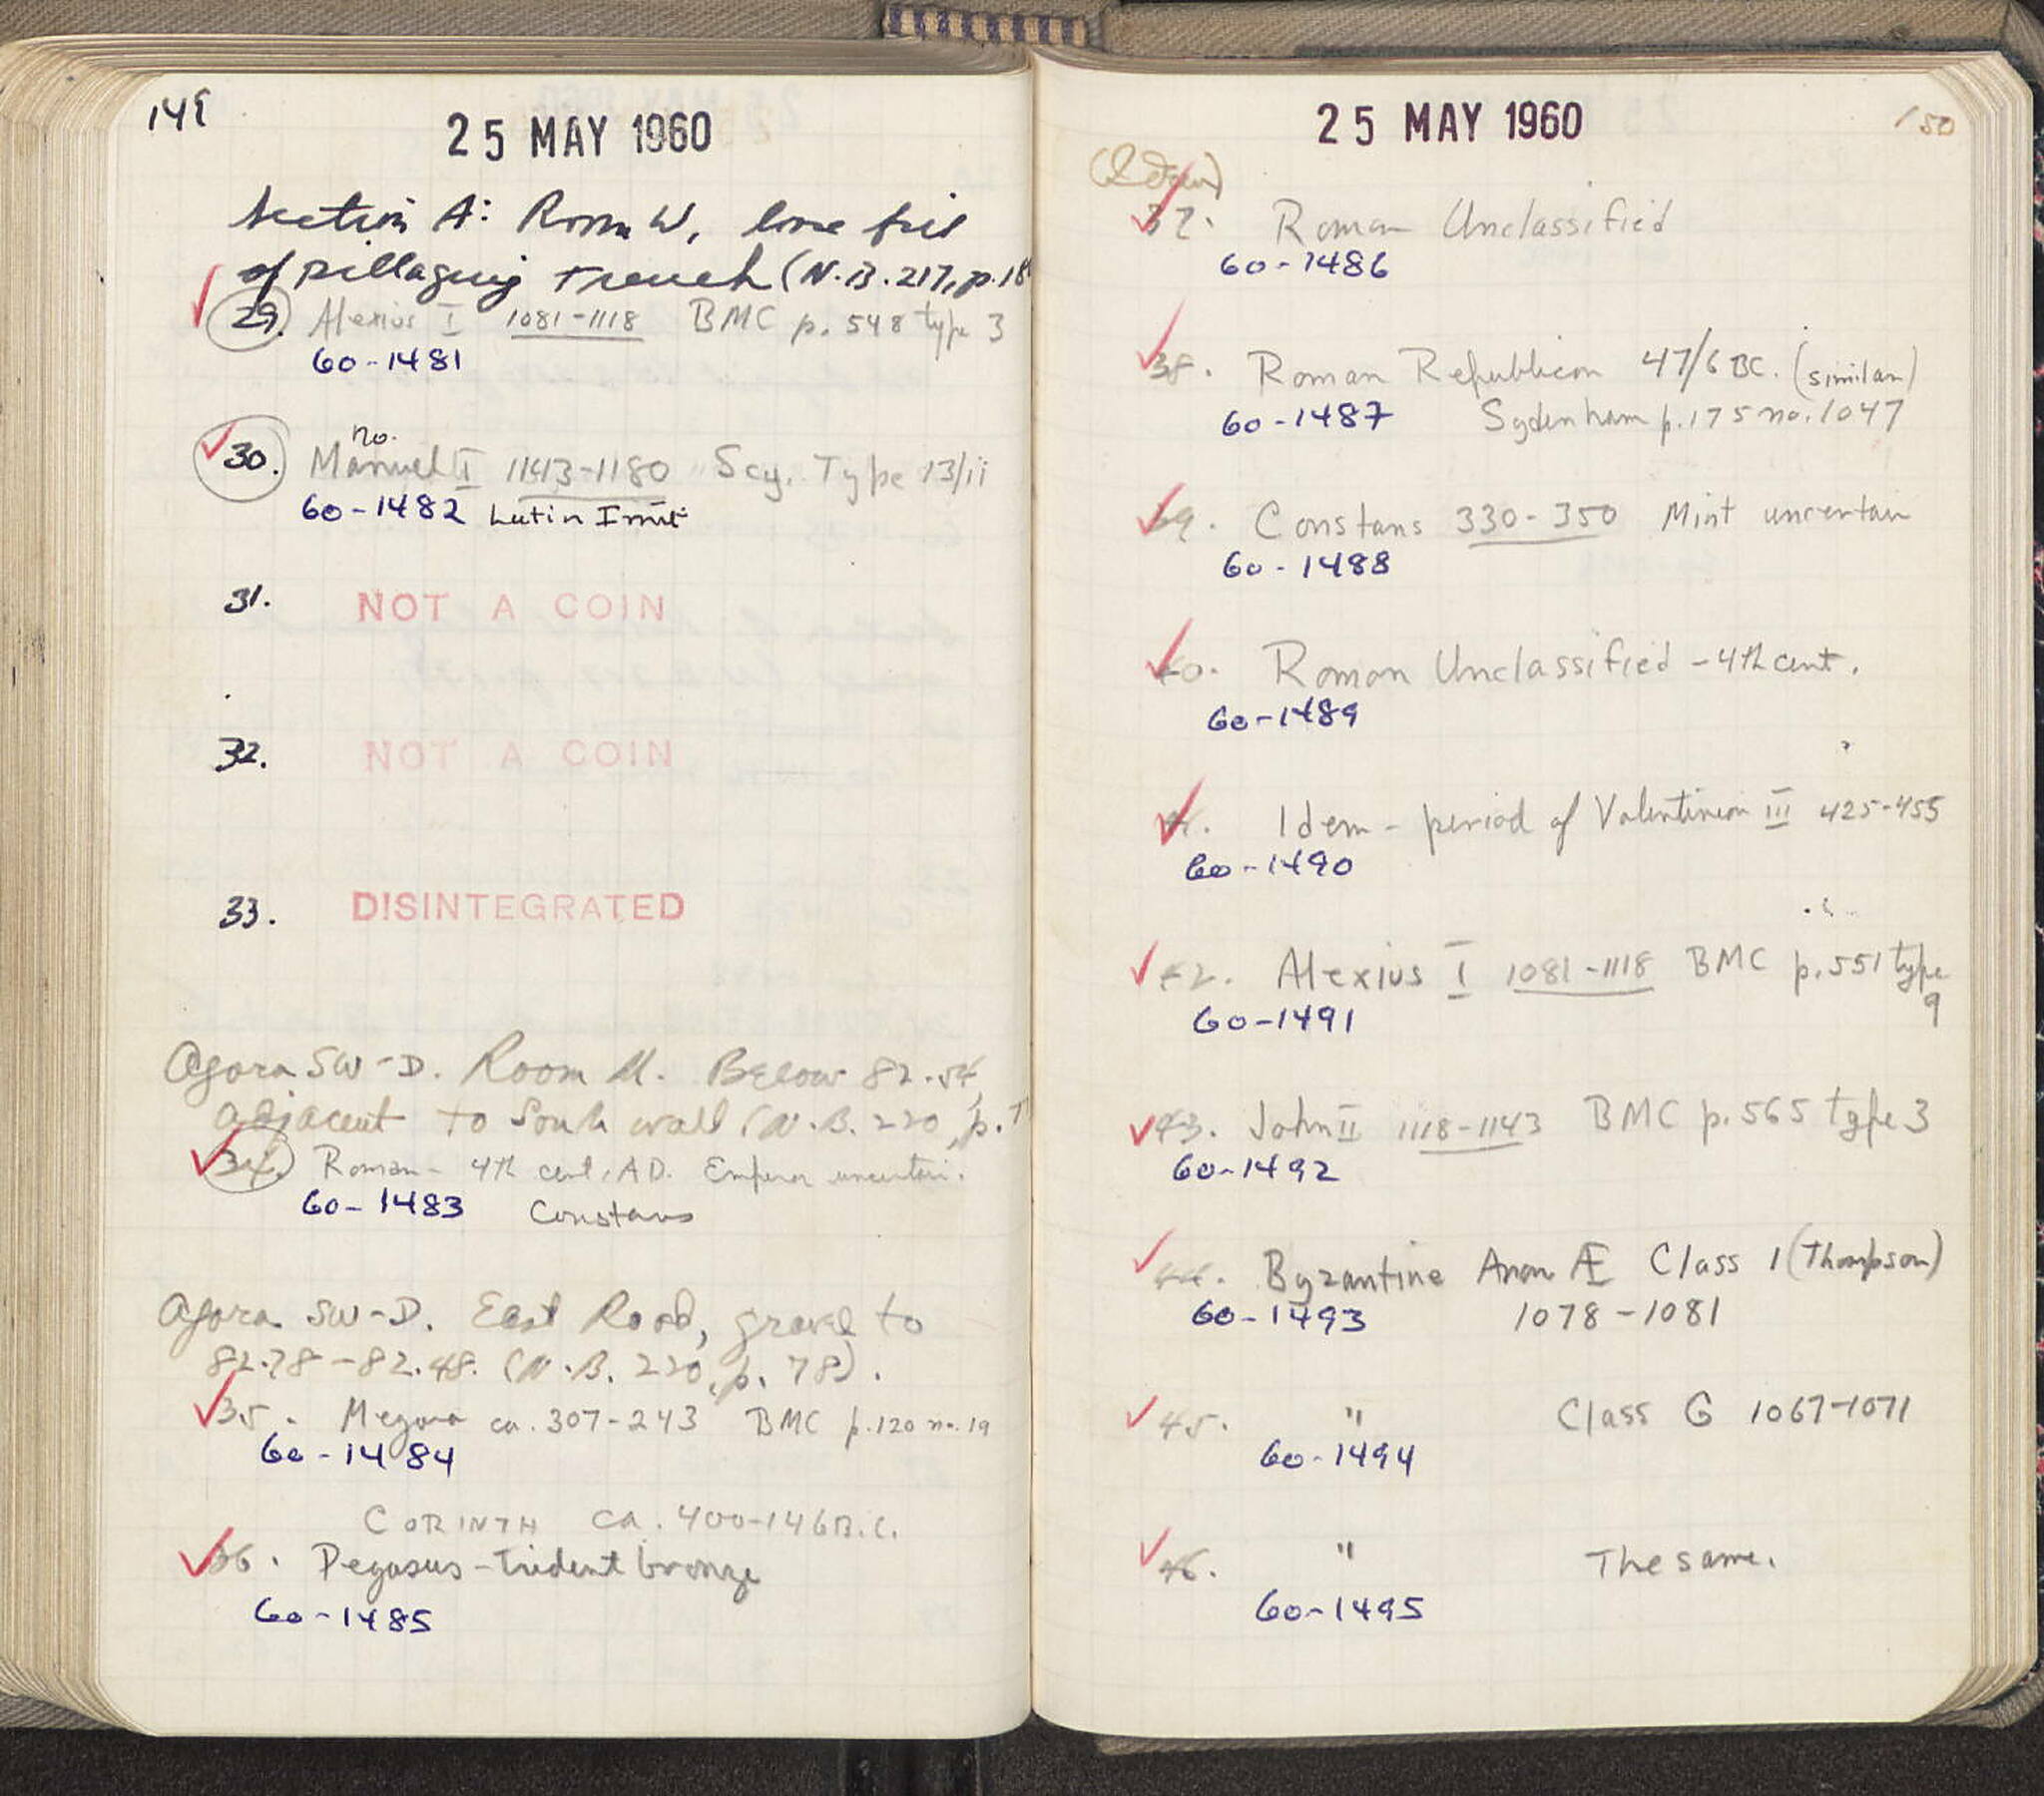 149
25 MAY 1960
Section A: Room W, loose fill
of pillaging trench (N.B. 217, p. 18
29. Alexius I 1081-1118 BMC p. 548 type 3
60-1481
no.
30. Manuel I 1143-1180 Scy. Type 13/ii
60-1482 Latin Imit
31. NOT A COIN
32. NOT A COIN
33. DISINTEGRATED
Agora SW-D. Room M. Below 82.54,
adjacent to South wall (N.B. 220, p. 7
34. Roman - 4th cent. A.D. Emperor uncertain.
60-1483 Constans
Agora SW-D. East Road, gravel to
82.78-82.48. (N.B. 220, p. 78).
35. Megara ca. 307-243 BMC p. 120 no. 19
60-1484
CORINTH ca. 400-146 B.C.
36. Pegasus-trident bronze
60-1485
150
25 MAY 1960
(Idem)
37. Roman Unclassified
60-1486
38. Roman Republican 47/6 BC. (similar)
60-1487 Sydenham p. 175 no. 1047
39. Constans 330-350 Mint uncertain
60-1488
40. Roman Unclassified - 4th cent.
60-1489
41. Idem - period of Valentinian III 425-455
60-1490
42. Alexius I 1081-1118 BMC p. 551 type
9
60-1491
43. John II 1118-1143 BMC p. 565 type 3
60-1492
44. Byzantine Anon Æ Class I (Thompson)
60-1493 1078-1081
45. " Class G 1067-1071
60-1494
46. " The same.
60-1495